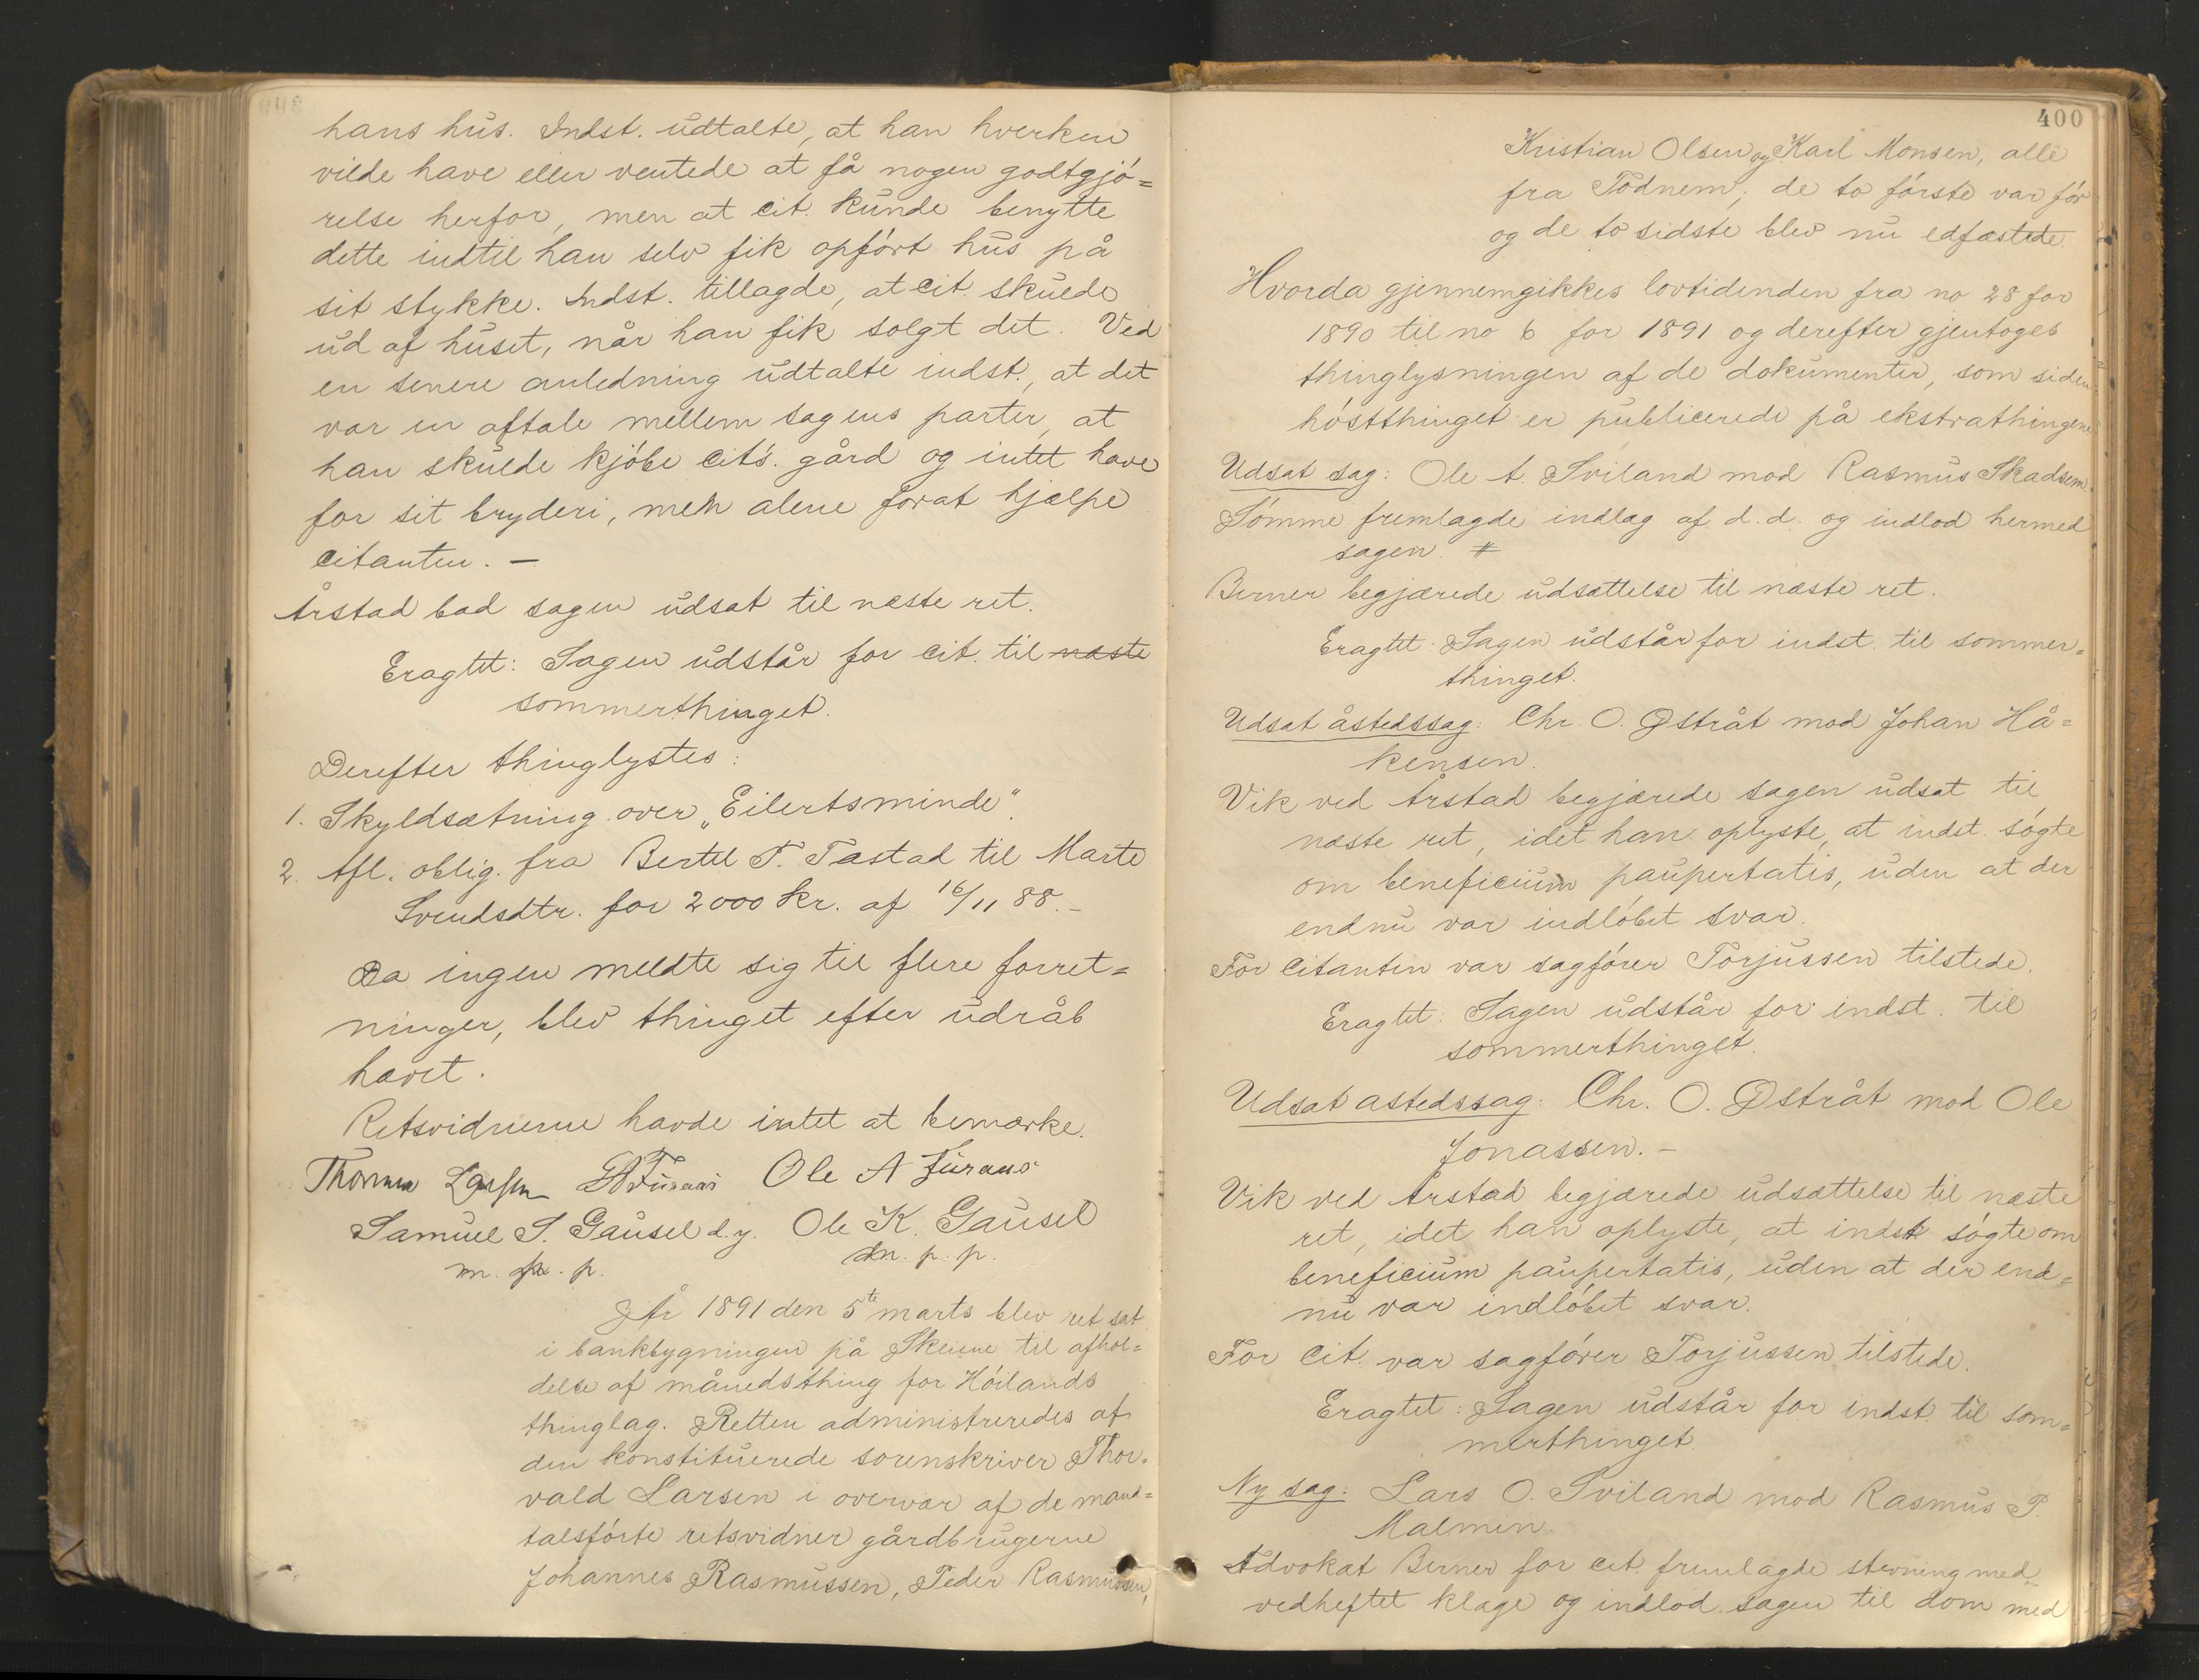 hans hus. Indst. udtalte, at han hverken
vilde have eller ventede at få nogen godtgjö=
relse herfor, men at cit. kunde benytte
dette indtil han selv fik opfört hus på
sit stykke. Indst. tillagde, at cit. skulde
ud af huset, når han fik solgt det. Ved
en senere anledning udtalte indst., at det
var en aftale mellem sagens parter, at
han skulde kjöbe cit's. gård og intet have
for sit bryderi, men alene forat hjælpe
citanten. –
Årstad bad sagen udsat til næste ret.
Eragtet: Sagen udstår for cit. til næste
sommerthinget.
Derefter thinglystes:
1. Skyldsætning over „Eilertsminde“.
2. Afl. oblig. fra Bertel T. Tastad til Marte
Svendsdtr. for 2000 kr. af 16/11 88. –
Da ingen meldte sig til flere forret=
ninger, blev thinget efter udråb
hævet.
Retsvidnerne havde intet at bemærke.
Thorvald Larsen Ole A Furaas
Samuel S. Gausel d.y. Ole K. Gausel
m. p. p. m. p. p.
År 1891 den 5te marts blev ret sat
i bankbygningen på Skeiene til afhol=
delse af månedsthing for Höilands
thinglag. Retten administreredes af
den konstituerede sorenskriver Thor=
vald Larsen i overvær af de mand=
talsförte retsvidner gårdbrugerne
Johannes Rasmussen, Peder Rasmussen,
400
Kristian Olsen og Karl Monsen, alle
fra Tödnem; de to förste var för
og de to sidste blev nu edfæstede.
Hvorda gjennemgikkes lovtidenden fra no 28 for
1890 til no 6 for 1891 og derefter gjentoges
thinglysningen af de dokumenter, som siden
höstthinget er publicerede på ekstrathingene
Udsat sag: Ole A. Sviland mod Rasmus Skadsem.
Sömme fremlagde indlæg af d.d. og indlod hermed
sagen. #
Berner begjærede udsættelse til næste ret.
Eragtet: Sagen udstår for indst. til sommer=
thinget.
Udsat åstedssag: Chr. O. Østråt mod Johan Hå=
kensen.
Vik ved Årstad begjærede sagen udsat til
næste ret, idet han oplyste, at indst. sögte
om beneficium paupertatis, uden at der
endnu var indlöbet svar.
For citanten var sagförer Torjussen tilstede.
Eragtet: Sagen udstår for indst. til
sommerthinget.
Udsat åstedssag: Chr. O. Østråt mod Ole
Jonassen. –
Vik ved Årstad begjærede udsættelse til næste
ret, idet han oplyste, at indst sögte om
beneficium paupertatis, uden at der end=
nu var indlöbet svar.
For cit. var sagförer Torjussen tilstede.
Eragtet: Sagen udstår for indst. til som=
merthinget.
Ny sag: Lars O. Sviland mod Rasmus P.
Malmin.
Advokat Berner for cit. fremlagde stevning med
vedheftet klage og indlod sagen til dom med